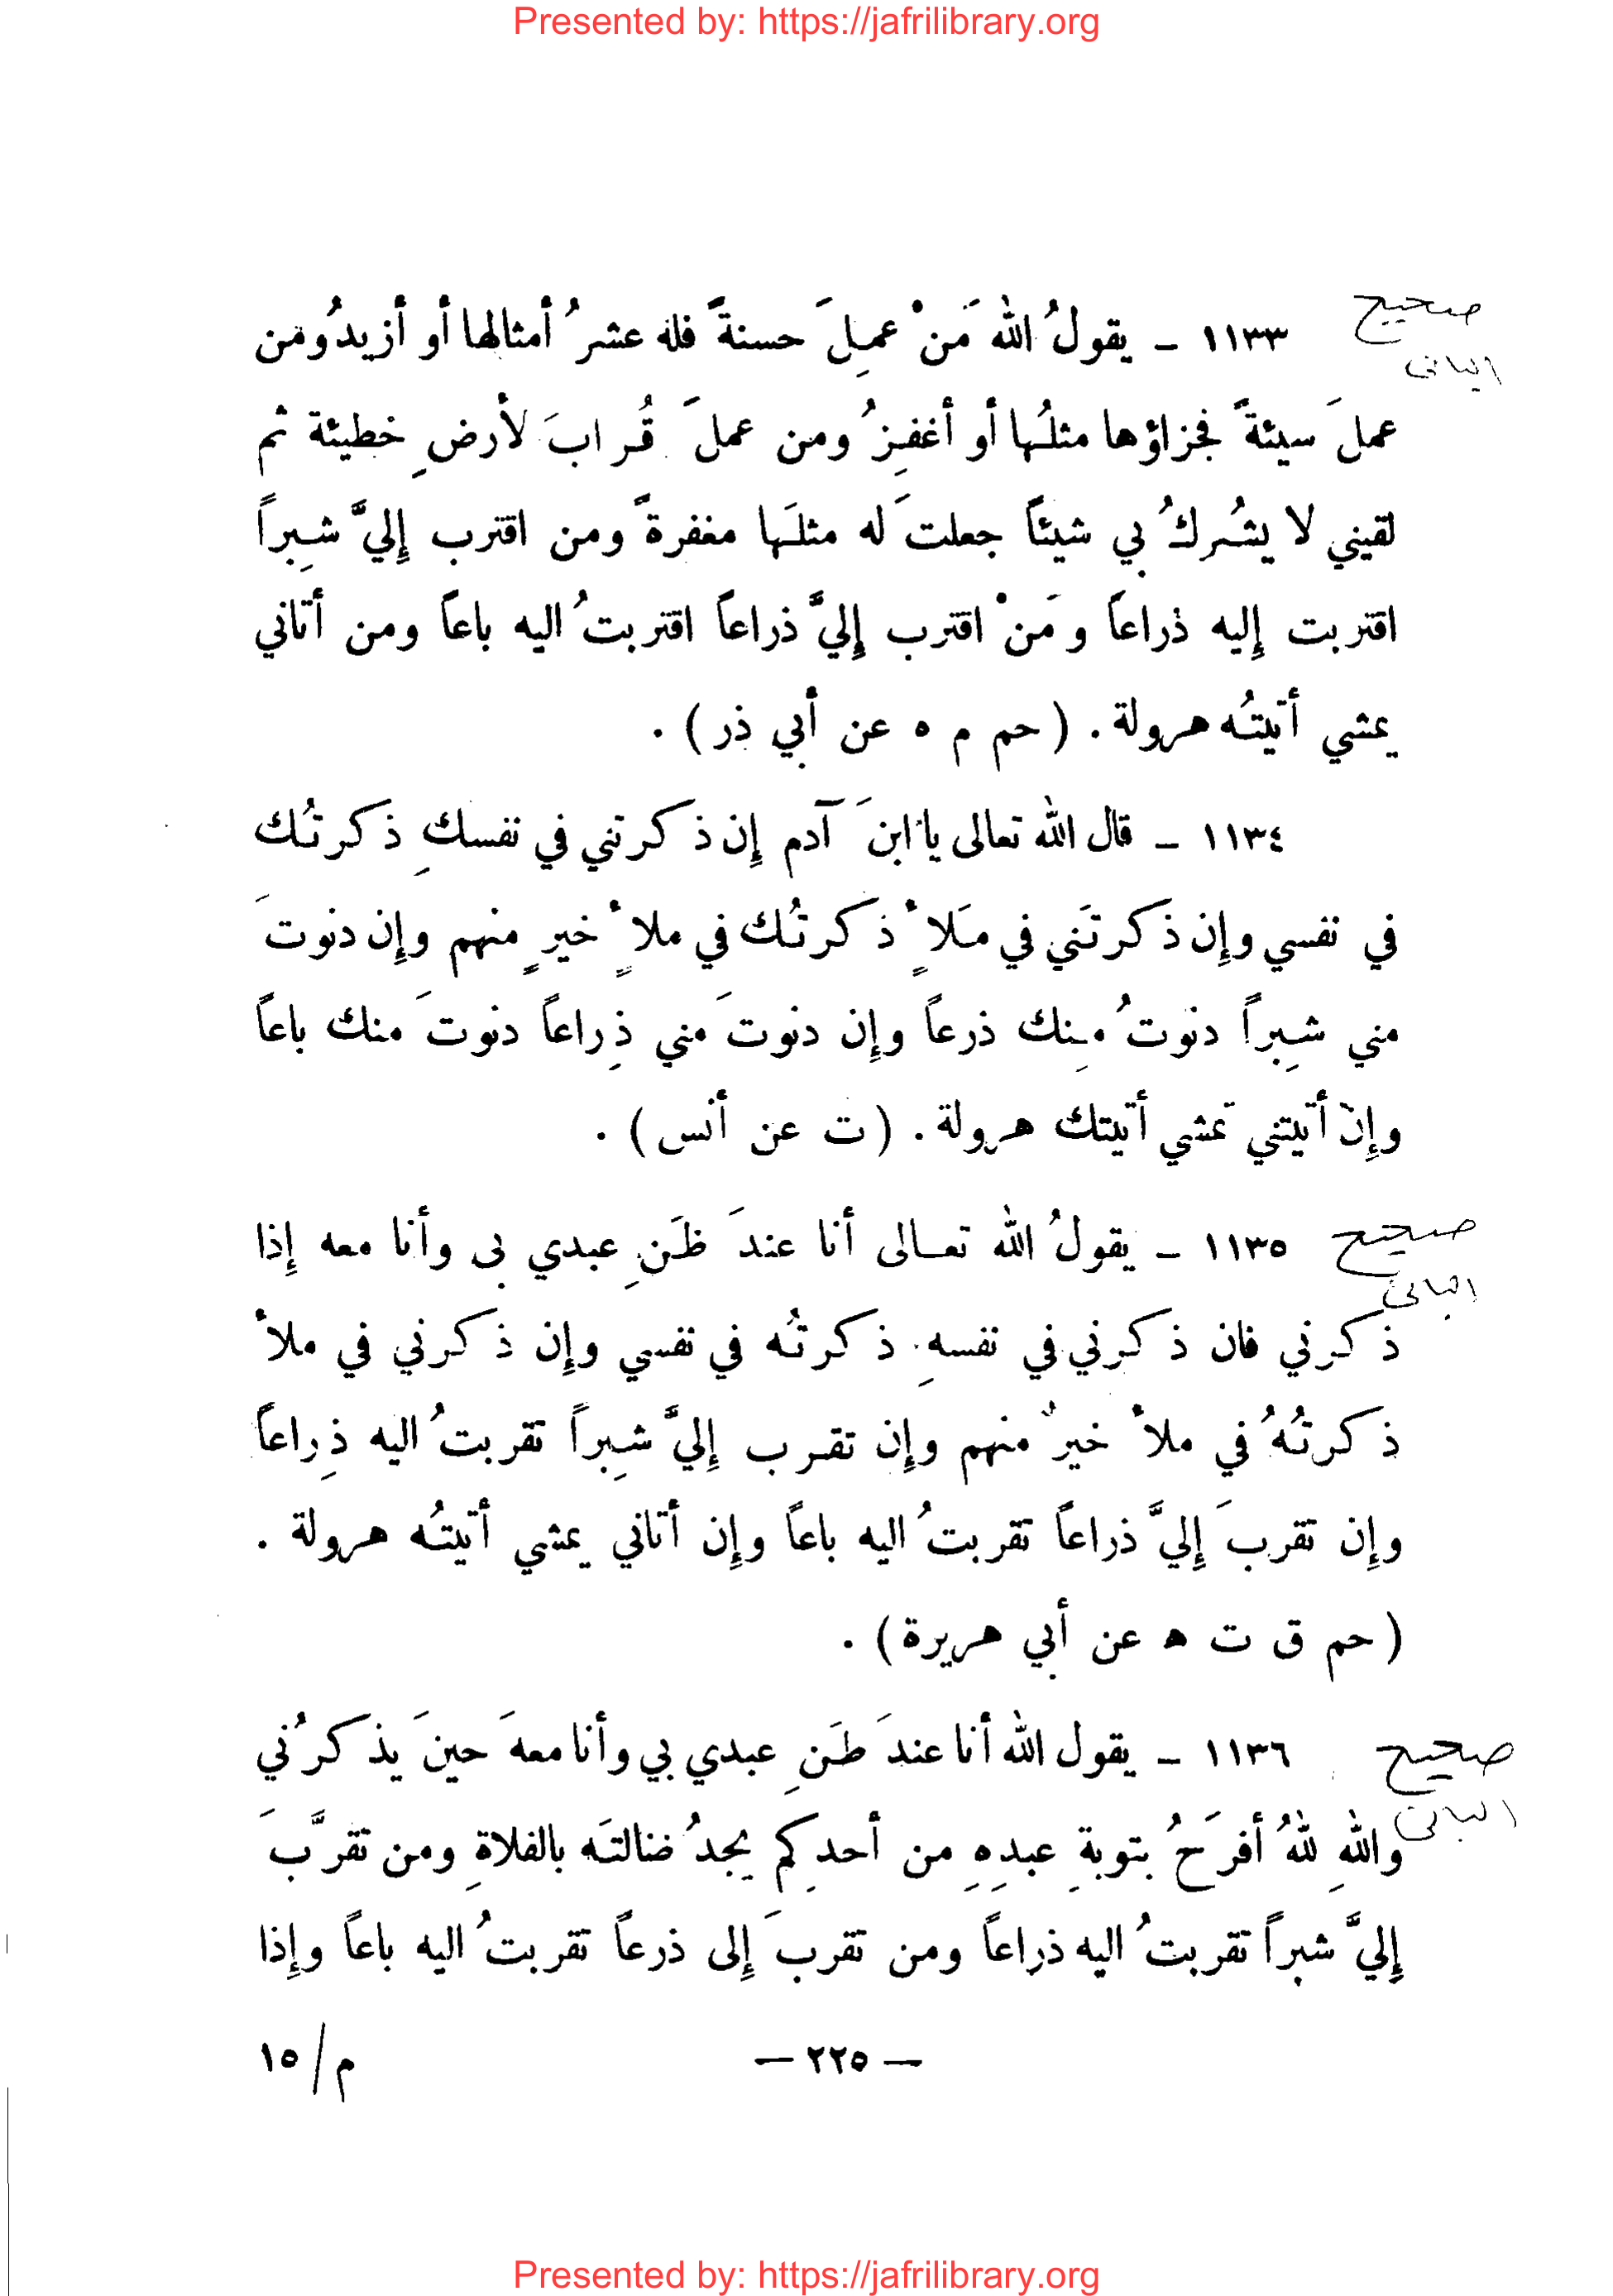 Presented by: https://jafrilibrary.org
صحيح
البانى
١١٣٣ – يقولُ الله مَنْ عمِلَ حسنةً فله عشرُ أمثالها أو أزيدُ ومن
عملَ سيئةً فجزاؤها مثلُها أو أغفِرُ ومن عملَ قُرابَ لأرضِ خطيئة ثم
لقيني لا يشُركُ بي شيئاً جعلتَ له مثلَها مغفرةً ومن اقترب إِليَّ شِبراً
اقتربت إِليه ذراعاً ومَنْ اقترب إِليَّ ذراعاً اقتربتُ اليه باعاً ومن أتاني
يمشي أتيتُه هرولة . ( حم م ه عن أبي ذر ) .
١١٣٤ – قال الله تعالى يا ابنَ آدم إِن ذكرتني في نفسكِ ذكرتُك
في نفسي وإِن ذكرتَني في مَلأٍ ذكرتُك في ملأٍ خيرٍ منهم وإِن دنوتَ
مني شِبراً دنوتُ مِنك ذرعاً وإِن دنوتَ مني ذِراعاً دنوتَ منك باعاً
وإِن أتيتني تمشي أتيتك هرولة . ( ت عن أنس ) .
صحيح
البانى
١١٣٥ – يقولُ الله تعالى أنا عندَ ظَنِ عبدي بى وأنا معه إِذا
ذكرني فان ذكرني في نفسهِ ذكرتُه في نفسي وإِن ذكرني في ملأ
ذكرتُهُ في ملأ خيرٌ منهم وإِن تقرب إِليَّ شِبراً تقربتُ اليه ذِراعاً
وإِن تقربَ إِليَّ ذراعاً تقربتُ اليه باعاً وإِن أتاني يمشي أتيتُه هرولة .
( حم ق ت ه عن أبي هريرة ) .
صحيح
البانى
١١٣٦ – يقول الله أنا عندَ ظَنِ عبدي بي وأنا معهَ حينَ يذكرُني
واللهِ للهُ أفرَحُ بتوبةِ عبدِهِ من أحدِكم يجدُ ضالتَه بالفلاةِ ومن تقرَّبَ
إِليَّ شبراً تقربتُ اليه ذراعاً ومن تقربَ إِلى ذرعاً تقربتُ اليه باعاً وإِذا
– ٢٢٥ –
م/١٥
Presented by: https://jafrilibrary.org